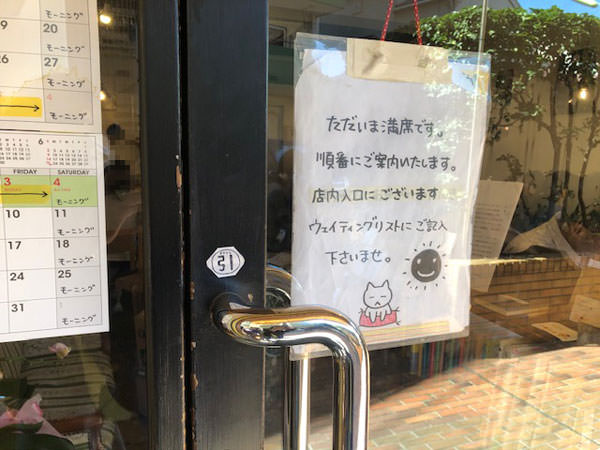 20
モーニング
27
モーニング
4
モーニング
6
FRIDAY
SATURDAY
3
4
モーニング
10
11
モーニング
17
18
モーニング
24
25
モーニング
31
モーニング
引
ただいま満席です。
順番にご案内いたします。
店内入口にございます
ウェイティングリストにご記入
下さいませ。